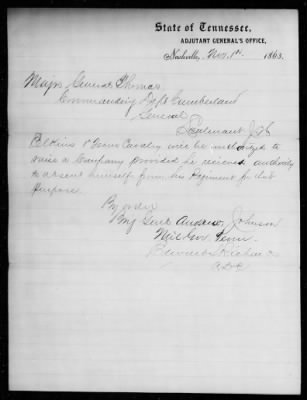 State of Tennessee,
ADJUTANT GENERAL'S OFFICE,
Nashville, Nov. 1st 1863.
Major General Thomas
Commanding Dept Cumberland
General
Lieutenant
Elkins 1st Tenn Cavalry will be authorized to
raise a Company provided he receives authority
to absent himself from his Regiment for that
Purpose.
By order
Brig Genl Andrew Johnson
Mil Gov Tenn.
Richards
ADC